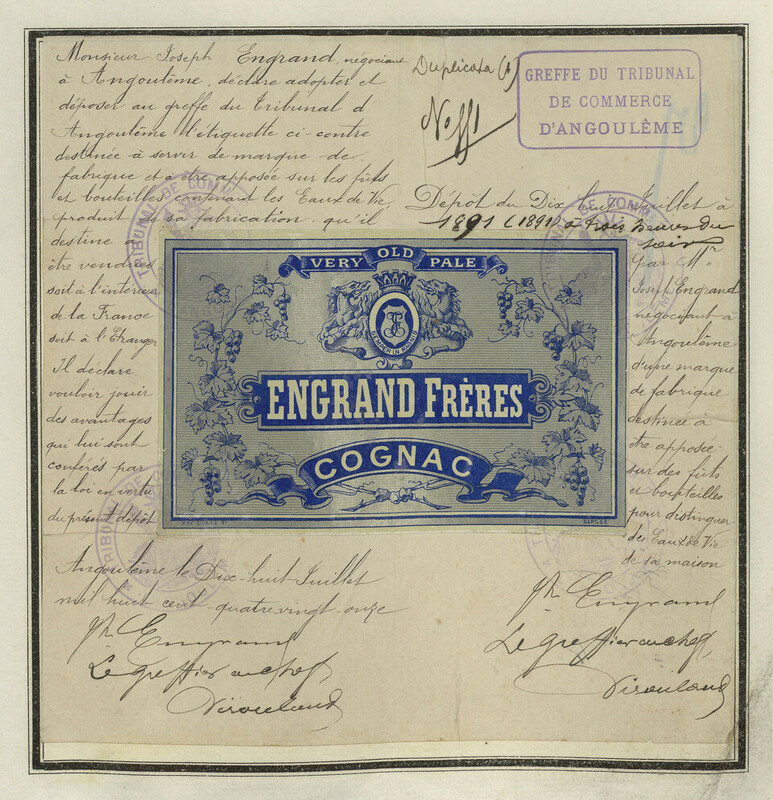 Monsieur Joseph Engrand, négociant
à Angoulême, déclare adopter et
déposer au greffe du tribunal d
Angoulême l'étiquette ci-contre
destinée à servir de marque de
fabrique et à être apposée sur les fûts
et bouteilles contenant les Eaux de Vie
produit de sa fabrication qu'il
destine
être vendues
soit à l'intérieur
de la France
soit à l'Etranger
Il déclare
vouloir jouir
des avantages
qui lui sont
conférés par
la loi en vertu
du présent dépôt
Angoulême le Dix-huit Juillet
mil huit cent quatre vingt onze
Jh Engrand
Le greffier en chef,
Duplicata (1)
GREFFE DU TRIBUNAL
DE COMMERCE
D'ANGOULÊME
Dépôt du Dix huit Juillet à
1891 (1891) à trois heures du
soir
par Mr
Joseph Engrand
négociant à
Angoulême
d'une marque
de fabrique
destinée à
être apposée
sur des fûts
et bouteilles
pour distinguer
des Eaux de Vie
de sa maison
Jh Engrand
Le greffier en chef,
VERY OLD PALE
ENGRAND FRÈRES
COGNAC
DÉPOSÉ
TRIBUNAL DE COMM
TRIBUNAL DE COMM
TRIBUNAL DE CO